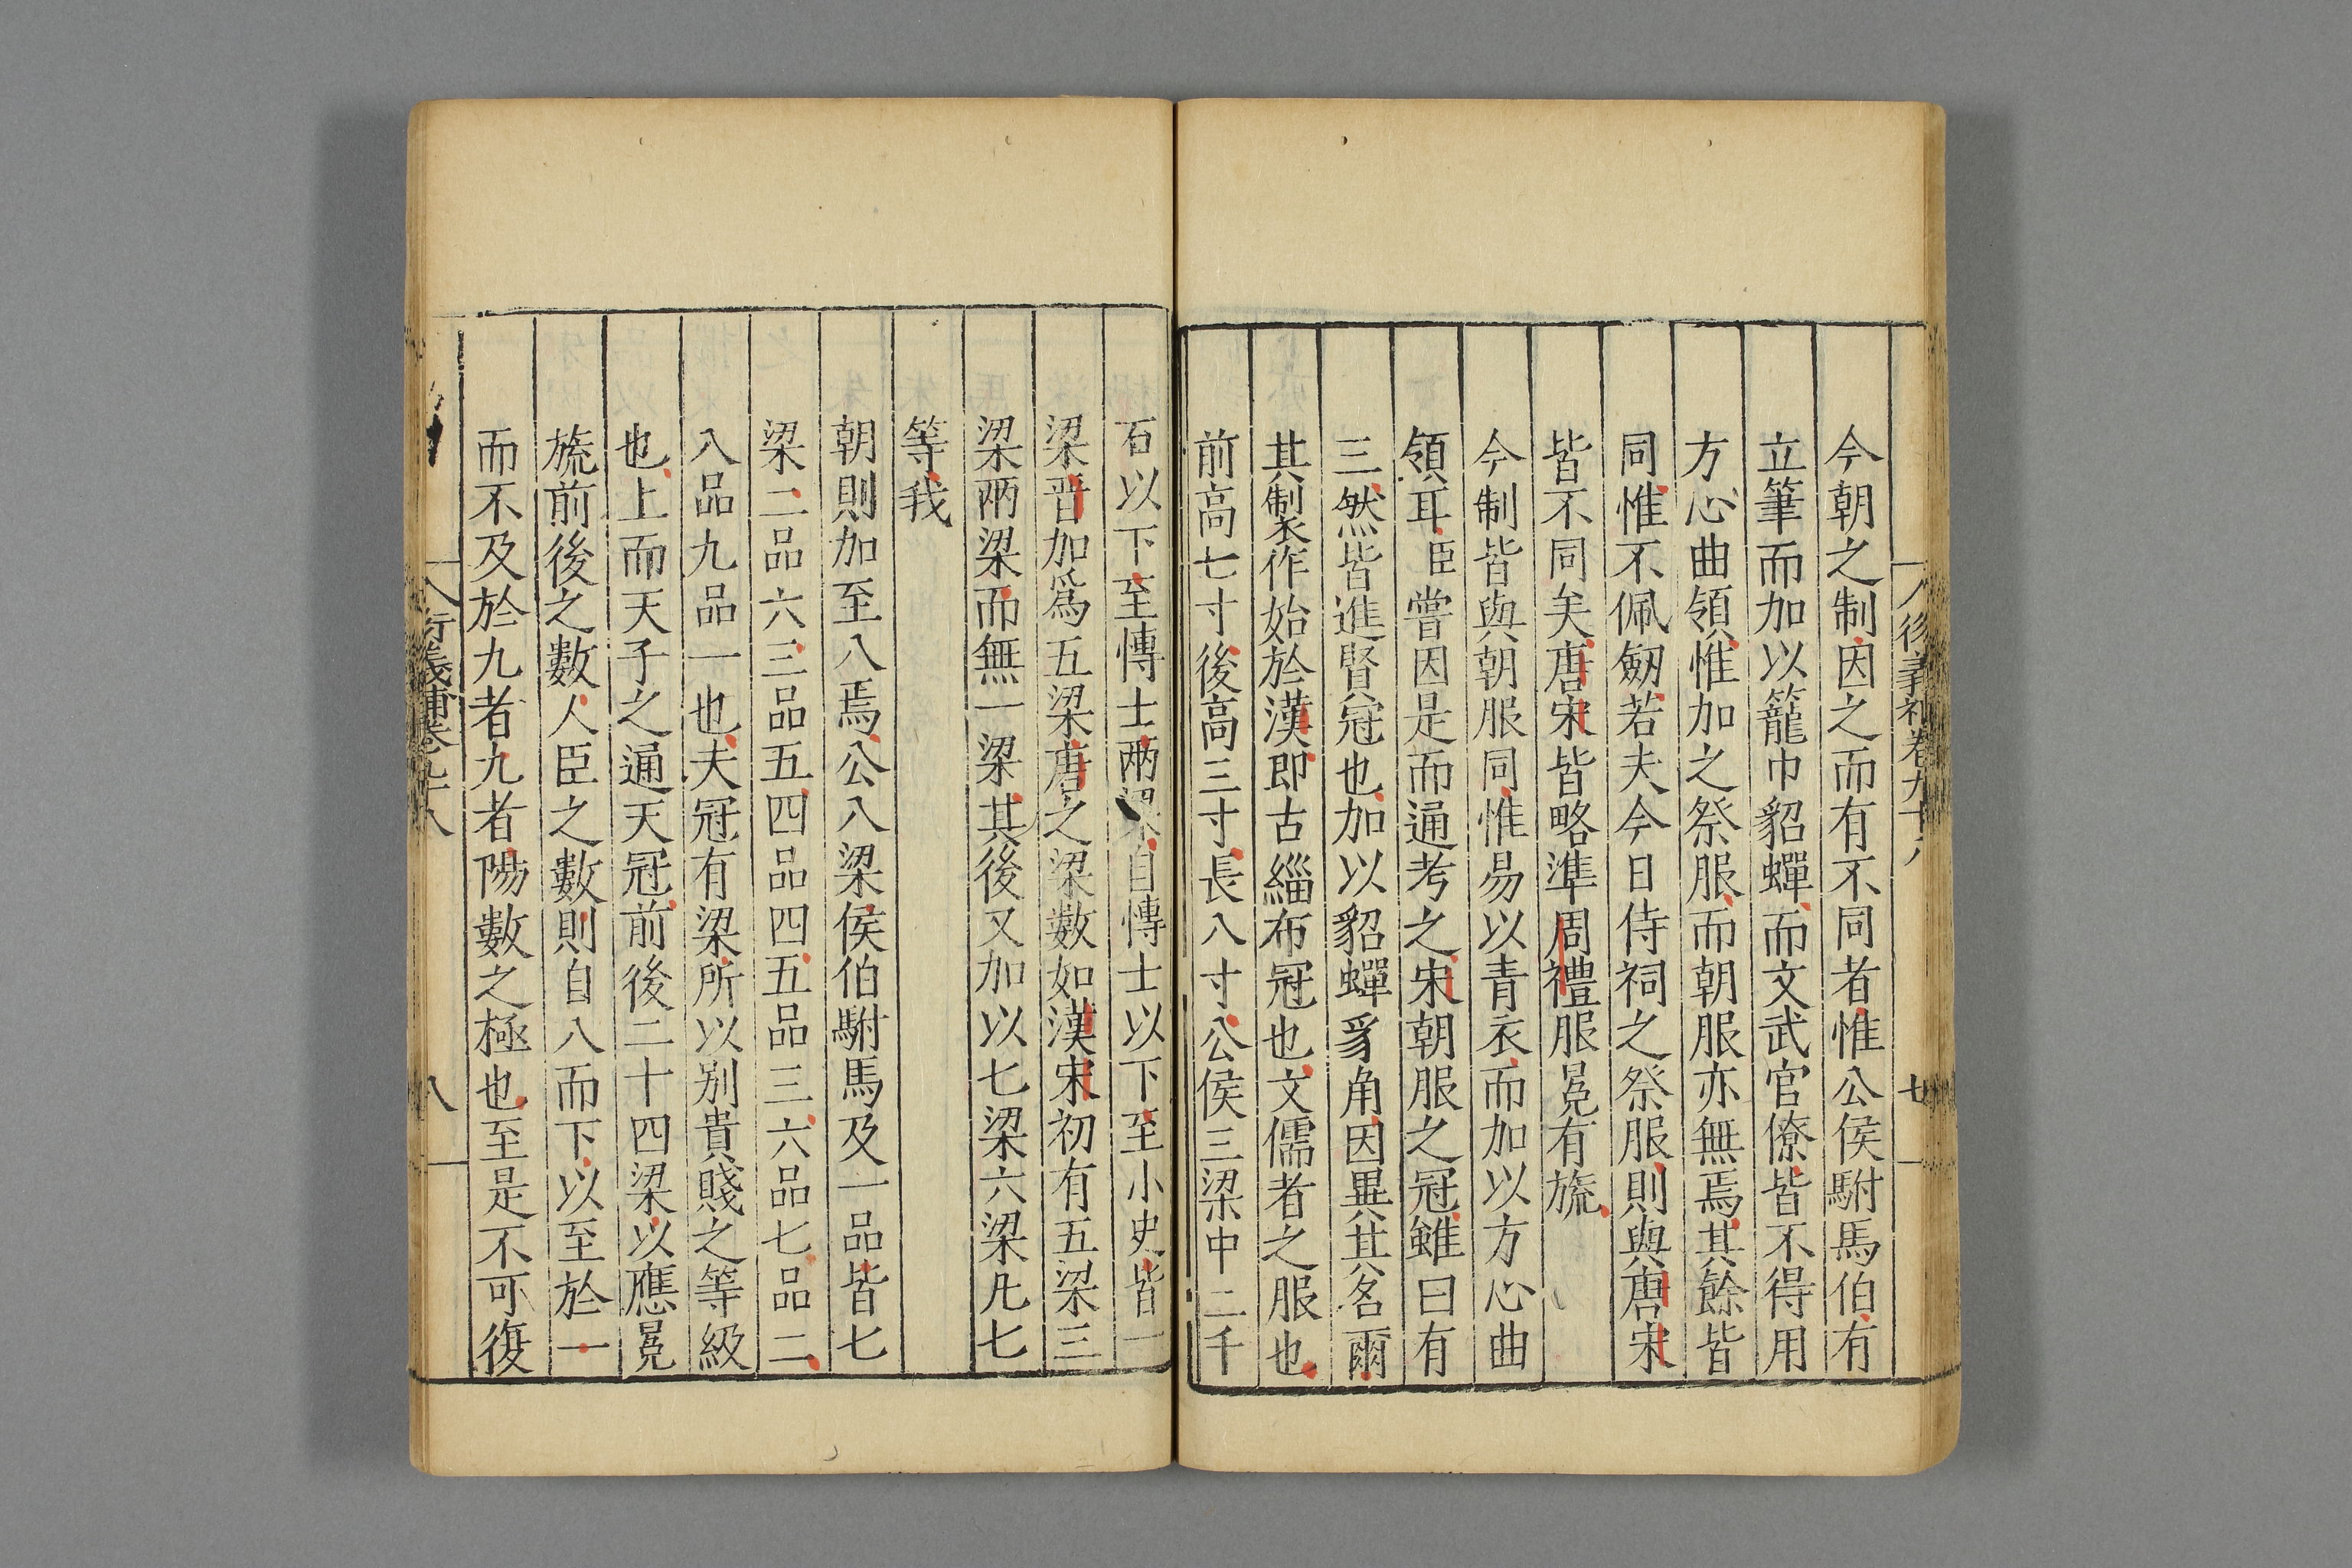 今朝之制因之而有不同者惟公侯駙馬伯有
立筆而加以籠巾貂蟬而文武官僚皆不得用
方心曲領惟加之祭服而朝服亦無焉其餘皆
同惟不佩劒若夫今日侍祠之祭服則與唐宋
皆不同矣唐宋皆略準周禮服冕有旒
今制皆與朝服同惟易以青衣而加以方心曲
領耳臣嘗因是而通考之宋朝服之冠雖曰有
三然皆進賢冠也加以貂蟬豸角因異其名爾
其製作始於漢即古緇布冠也文儒者之服也
前高七寸後高三寸長八寸公侯三梁中二千
石以下至博士兩梁自博士以下至小史皆一
梁晋加爲五梁唐之梁数如漢宋初有五梁三
梁兩梁而無一梁其後又加以七梁六梁凡七
等我
朝則加至八焉公八梁侯伯駙馬及一品皆七
梁二品六三品五四品四五品三六品七品二
八品九品一也夫冠有梁所以别貴賤之等級
也上而天子之通天冠前後二十四梁以應冕
旒前後之數人臣之數則自八而下以至於一
而不及於九者九者陽數之極也至是不可復
衍義補卷九十八
八